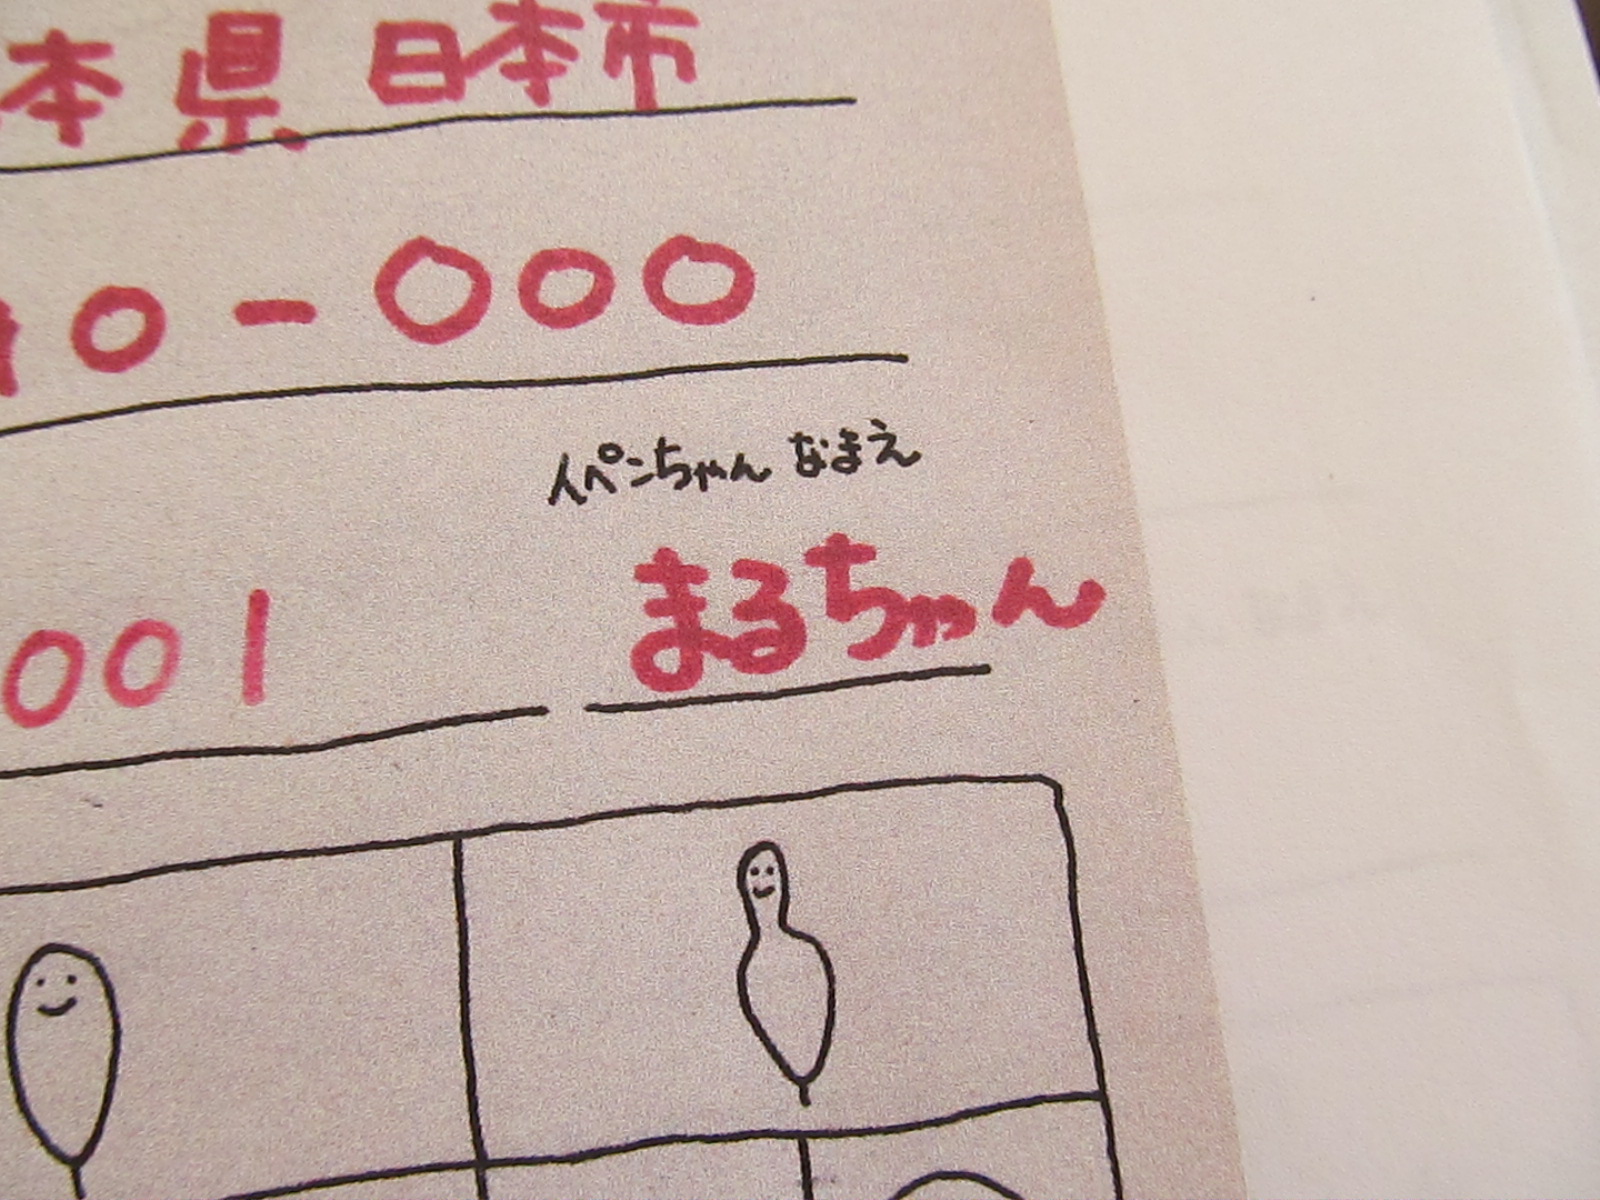 本県 日本市
0-000
イペンちゃん なまえ
001 まるちゃん